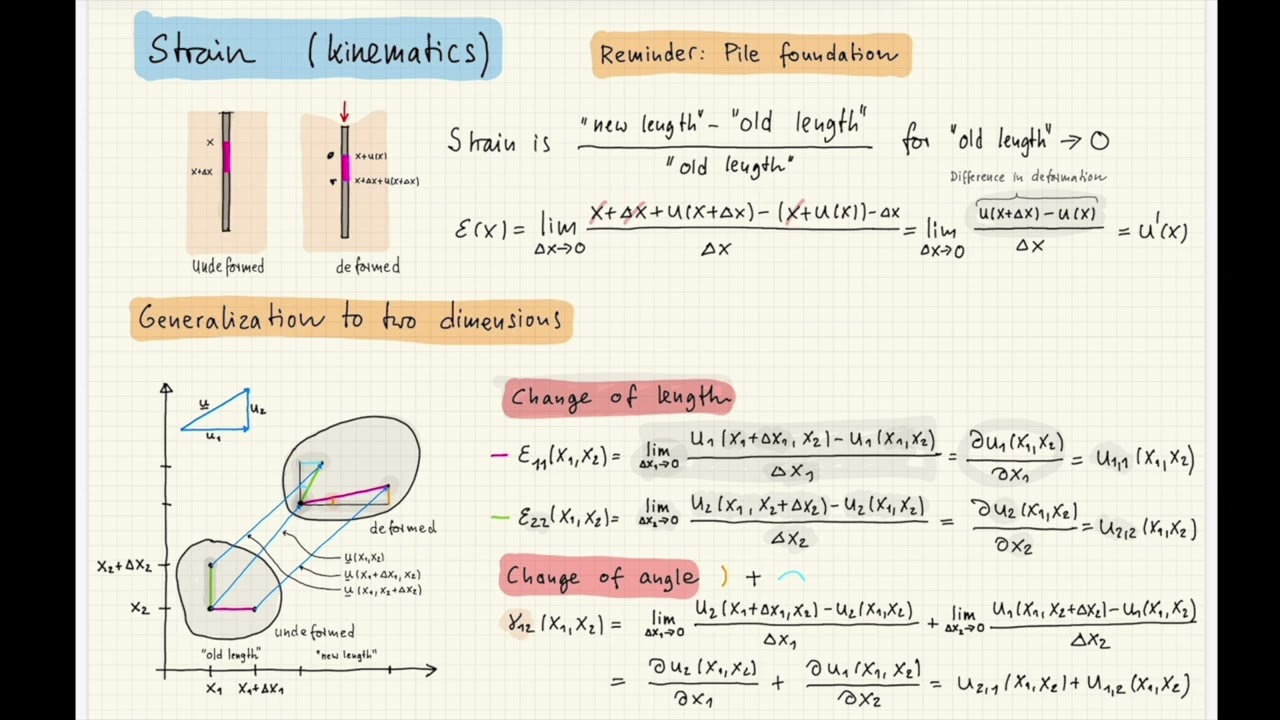 Strain (kinematics)
Reminder: Pile foundation
x
x+Δx
undeformed
x+u(x)
x+Δx+u(x+Δx)
deformed
Strain is "new length" - "old length" / "old length" for "old length" → 0
Difference in deformation
ε(x) = lim Δx→0 (x+Δx+u(x+Δx)-(x+u(x))-Δx) / Δx = lim Δx→0 (u(x+Δx)-u(x)) / Δx = u'(x)
Generalization to two dimensions
u
u₂
u₁
deformed
u(x₁,x₂)
u(x₁+Δx₁, x₂)
u(x₁, x₂+Δx₂)
x₂+Δx₂
x₂
undeformed
"old length" "new length"
x₁ x₁+Δx₁
Change of length
ε₁₁(x₁,x₂) = lim Δx₁→0 (u₁(x₁+Δx₁, x₂) - u₁(x₁,x₂)) / Δx₁ = ∂u₁(x₁,x₂) / ∂x₁ = u₁,₁(x₁,x₂)
ε₂₂(x₁,x₂) = lim Δx₂→0 (u₂(x₁, x₂+Δx₂) - u₂(x₁,x₂)) / Δx₂ = ∂u₂(x₁,x₂) / ∂x₂ = u₂,₂(x₁,x₂)
Change of angle ) + ⌒
γ₁₂(x₁,x₂) = lim Δx₁→0 (u₂(x₁+Δx₁,x₂) - u₂(x₁,x₂)) / Δx₁ + lim Δx₂→0 (u₁(x₁, x₂+Δx₂) - u₁(x₁,x₂)) / Δx₂
= ∂u₂(x₁,x₂) / ∂x₁ + ∂u₁(x₁,x₂) / ∂x₂ = u₂,₁(x₁,x₂) + u₁,₂(x₁,x₂)